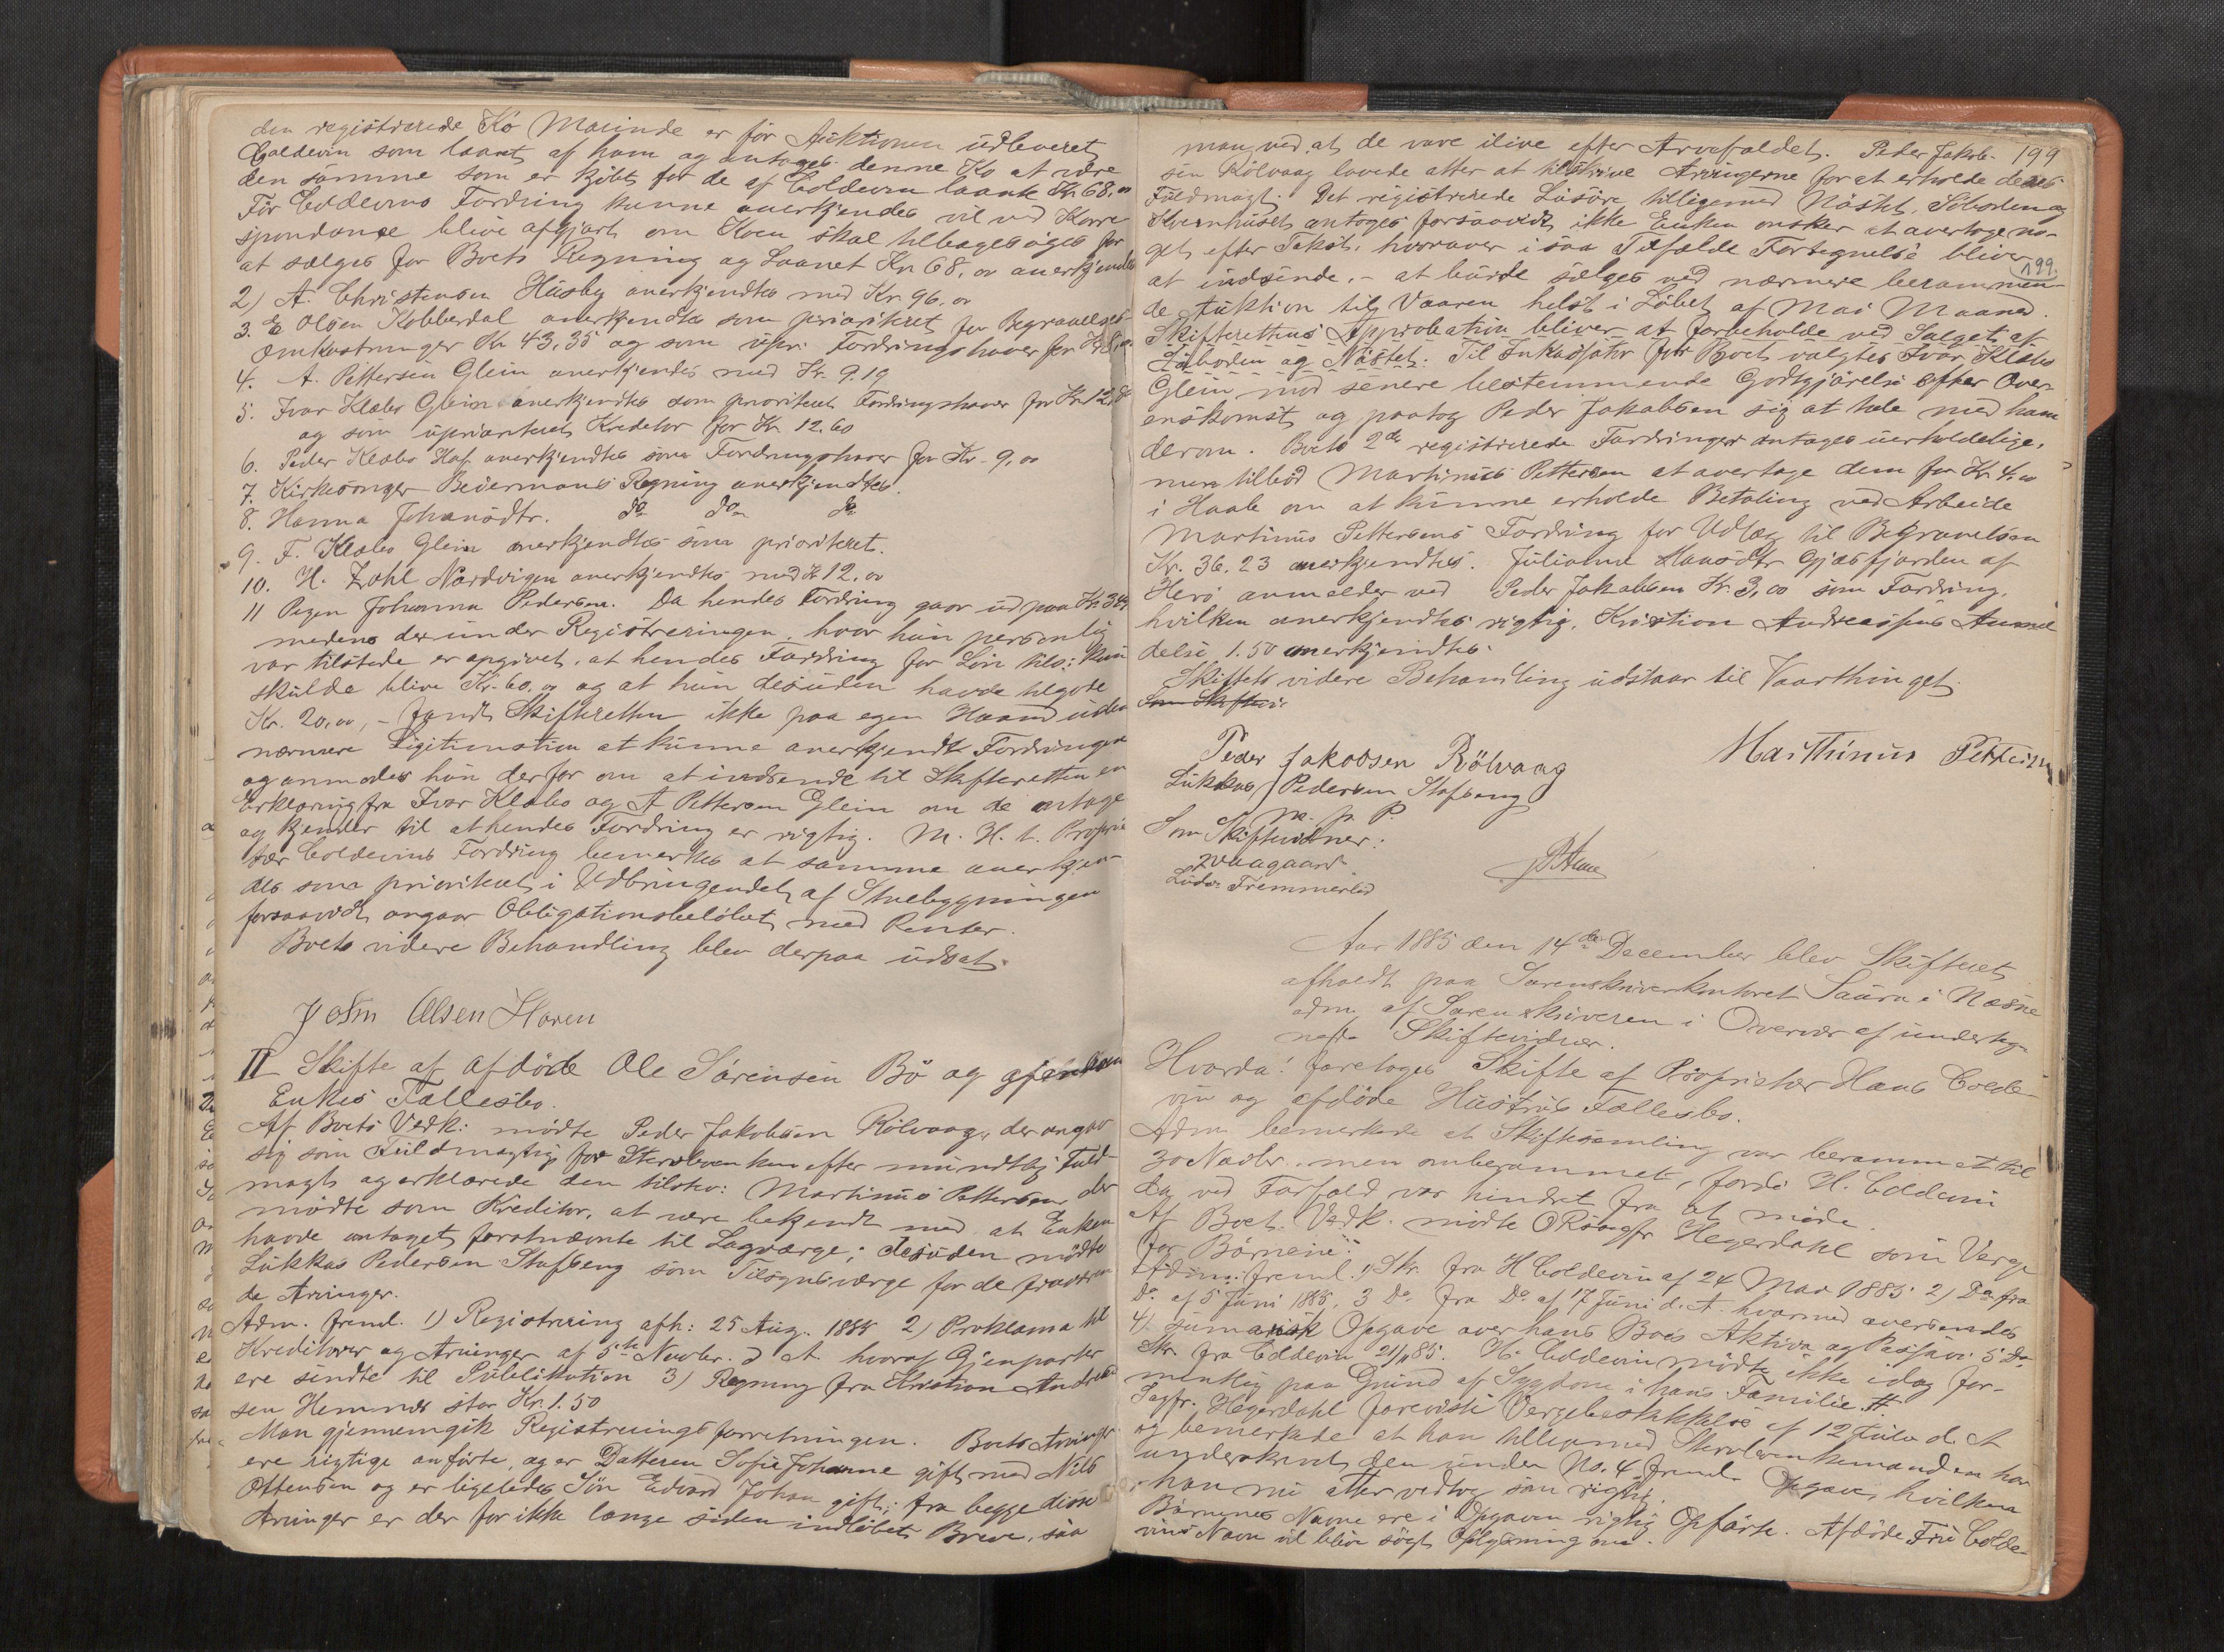 den registrerede Ko Marinde er før Auktionen udleveret
Coldevin som laant af ham og antages denne Ko at være
den samme som er kjøbt for de af Coldevin laante Kr 68,00
Før Coldevins Fordring kunne anerkjendes vil ved Korre-
spondance blive afgjort om Koen skal tilbagesøges for
at sælges for Boets Regning og Laanet Kr 68,00 anerkjendes
2) A. Christensen Husby anerkjendtes med Kr 96,00
3. E Olsen Kobberdal anerkjendtes som prioriteret for Begravelses-
omkostninger Kr 43,35 og som upr. Fordringshaver for
4. A. Pettersen Glein anerkjendes med Kr. 9.19
5. Ivar Klæbo Glein anerkjendtes som prioriteret Fordringshaver for Kr 12
og som uprioriteret Kreditor for Kr. 12.60
6. Peder Klæbo Haf anerkjendtes som Fordringshaver for Kr. 9,00
7. Kirkesanger Beiermans Regning anerkjendtes.
8. Hanna Johansdtr. do do do
9. F. Klæbo Glein anerkjendtes som prioriteret.
10. H. Zahl Nordvigen anerkjendtes med Kr 12,00
11 Pigen Johanna Pedersen. Da hendes Fordring gaar ud paa Kr
medens der under Registreringen, hvor hun personlig
var tilstede er opgivet, at hendes Fordring for Løn tils: kun
skulde blive Kr. 60,00 og at hun desuden havde tilgode
Kr. 20,00, - fandt Skifteretten ikke paa egen Haand uden
nærmere Legitimation at kunne anerkjendt Fordringen
og anmodes hun derfor om at indsende til Skifteretten en
Erklæring fra Ivar Klæbo og A Pettersen Glein om de antage
og kjender til at hendes Fordring er rigtig. M. H. t. Proprie
tær Coldevins Fordring bemerkes at samme anerkjen-
des som prioriteret i Udbringendet af Stuebygningen
forsaavidt angaar Obligationsbeløbet med Renter.
Boets videre Behandling blev derpaa udsat.
John Olsen Haren
II Skifte af afdøde Ole Sørensen Bø og gjenlevende
Enkes Fællesbo.
Af Boets Vedk: mødte Peder Jakobsen Rölvaag, der angav
sig som Fuldmægtig for Stervboenken efter mundtlig Fuld-
magt og erklærede den tilstev: Martinus Pettersen, der
mødte som Kreditor, at være bekjendt med at Enken
havde antaget forstnævnte til Lagværge; desuden mødte
Lukkas Pedersen Stafseng som Tilsynsværge for de fraværen
de Arvinger.
Adm. freml. 1) Registrering afh: 25 Aug. 1885 2) Proklama til
Kreditorer og Arvinger af 5te Novbr. d A hvoraf Gjenparter
ere sendte til Publikation 3) Regning fra Kristian Andreas
sen Hemnes stor Kr. 1.50
Man gjennemgik Registreringsforretningen. Boets Arvinger
ere rigtige anførte, og er Datteren Sofie Johanne gift med Nils
Ottensen og er ligeledes Søn Edvard Johan gift; fra begge disse
Arvinger er der for ikke længe siden indløbet Breve, saa
199
man ved, at de vare ilive efter Arvefaldet. Peder Jakob-
sen Rölvaag lovede atter at tilskrive Arvingerne for at erholde deres
Fuldmagt. Det registrerede Løsøre tilligemed Nøstet, Søboden og
Kvernhuset antages forsaavidt ikke Enken ønsker at overtage no-
get efter Takst, hvorover i saa Tilfælde Fortegnelse bliver
199.
at indsende, - at burde sælges ved nærmere berammen-
de Auktion til Vaaren helst i Løbet af Mai Maaned.
Skifterettens Approbation bliver at forbeholde ved Salget af
Søboden og Nøstet. Til Inkassator for Boet valgtes Ivar Klæbo
Glein mod senere bestemmende Godtgjørelse efter Over-
enskomst og paatog Peder Jakobsen sig at tale med ham
derom. Boets 2de registrerede Fordringer antages uerholdelige,
men tilbød Martinus Pettersen at overtage dem for Kr 4.00
i Haab om at kunne erholde Betaling ved Arbeide
Martinus Pettersens Fordring for Udlæg til Begravelsen
Kr. 36.23 anerkjendtes. Juliane Hansdtr Gjæsfjorden af
Herø anmelder ved Peder Jakobsen Kr. 3,00 som Fordring,
hvilken anerkjendtes rigtig. Kristian Andreassens Anmel
delse 1.50 anerkjendtes.
Skiftets videre Behandling udstaar til Vaarthinget.
Som Skiftevi
Peder Jakobsen Rölvaag
Marthinus Pettersen
Lukkas Pedersen Stafseng
m. p. P.
Som Skiftevidner:
Lüder Fremmerlid
Aar 1885 den 14de December blev Skifteret
afholdt paa Sorenskriverkontoret Saura i Næsne
adm af Sorenskriveren i Overvær af underteg-
nede Skiftevidner.
Hvorda: foretoges Skifte af Proprietær Hans Colde-
vin og afdøde Hustrus Fællesbo.
Adm bemerkede at Skiftesamling var berammet til
30 Novbr. men ombegrammet, fordi H. Coldevin
da ved Forfald var hindret fra at møde.
Af Boet Vedk. mødte ORsagfr Hegerdahl som Verge
for Børnene.
Adm. freml. 1) Skr. fra H Coldevin af 24 Mar 1885 2) Do fra
Do af 5 Juni 1885, 3 Do fra Do af 17 Juni d. A. hvormed oversendes
4) sumarisk Opgave over hans Boes Aktiva og Passiva 5 Do
Skr. fra Coldevin 21/11 85. H. Coldevin mødte ikke idag for-
mentlig paa Grund af Sygdom i hans Familie. #
Sagfr. Hegerdahl foreviste Vergebeskikkelse af 12 Juli d. A
og bemerkede at han tilligemed Stervboenkemanden har
underskrevet den under No. 4 freml. Opgave, hvilken
han nu atter vedtog som rigtig.
Børnenes Navne ere i Opgaven rigtig Opførte. Afdøde Fru Colde-
vins Navn vil blive søgt Oplysning om.